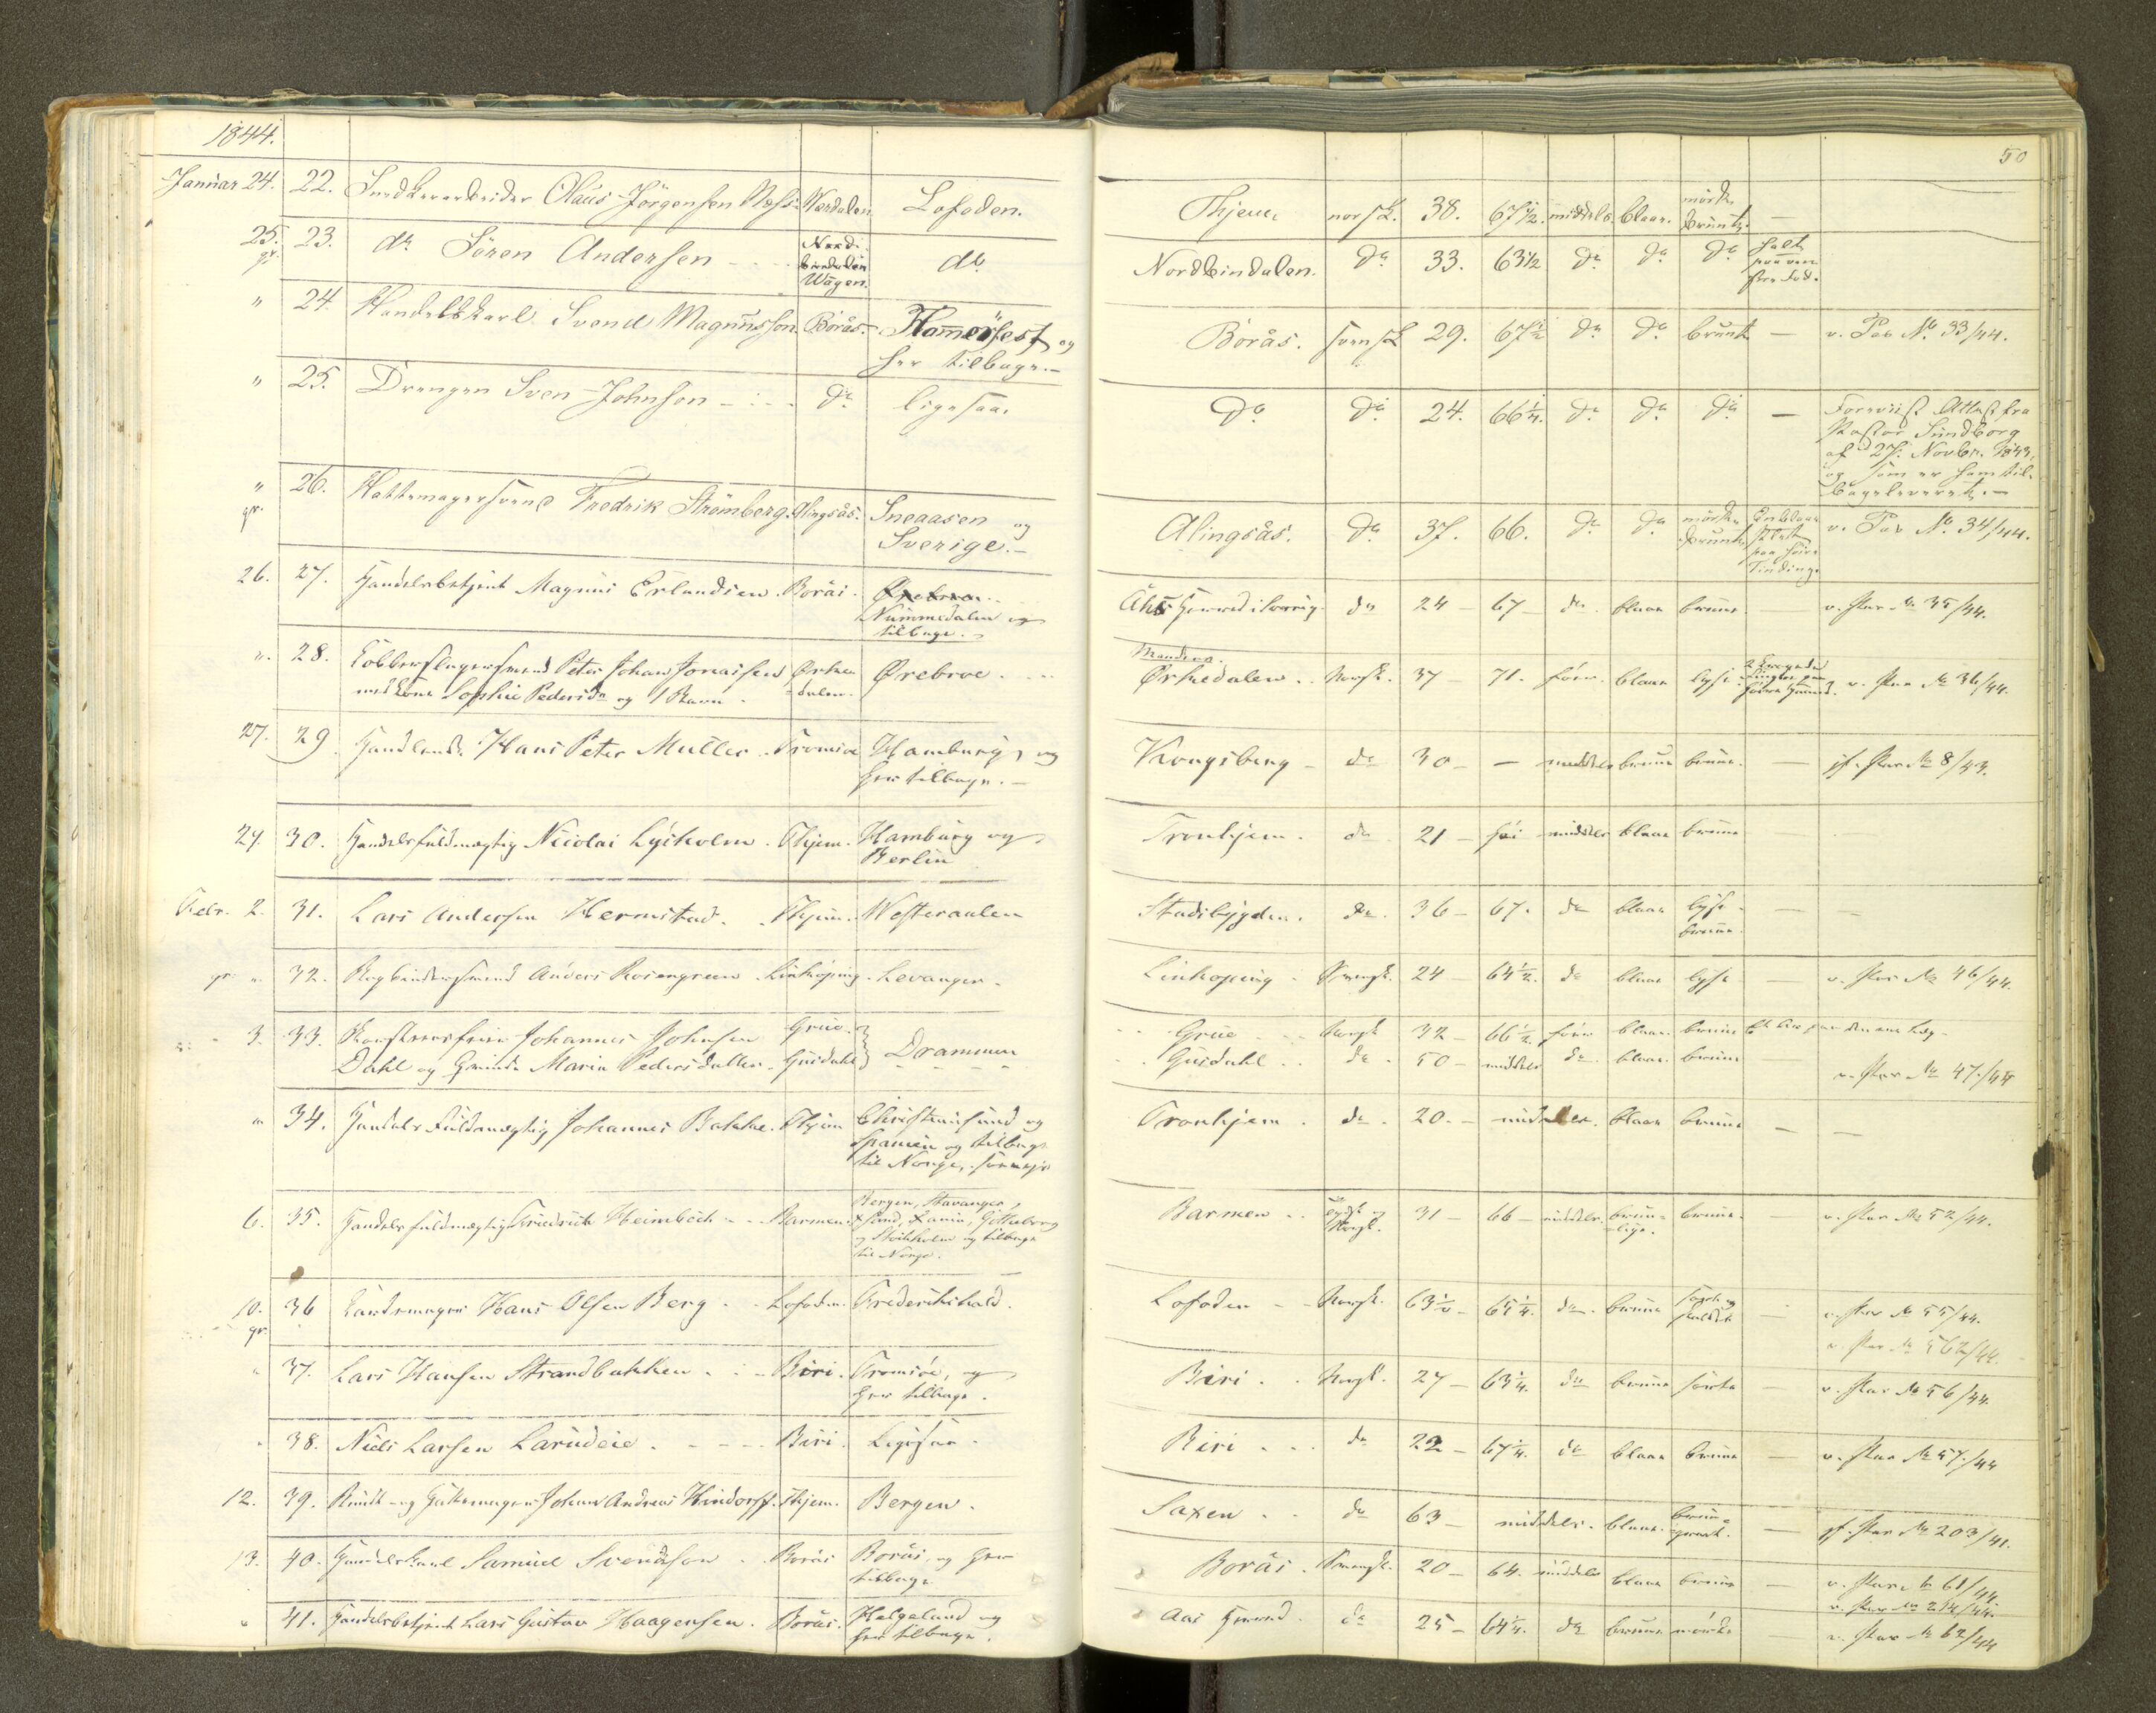 1844.
50
Januar 24. 22. Snedkerarbeider Olaus Jörgensen Næss Værdalen Lofoden. Thjem norsk. 38. 67½. middels. blaae. mörke bruunt. —
25. gr. 23. do Sören Andersen Nord- bindalen Wägen. do Nordbindalen. do 33. 63½ do do do halt paa ven stre Fod.
" 24. Handelskarl Svend Magnusson Borås. Hamerfest og her tilbage. Borås. svensk 29. 67½ do do bruunt — v. Pas No 33/44.
" 25. Drengen Sven Johnson do ligesaa. do do 24. 66¼. do do do — Foreviist Attest fra
Pastor Sundborg
af 27. Novbr. 1843,
og som er ham til-
bageleveret.
" gr. 26. Hattemagersvend Fredrik Strömberg. Alingsås. Sneaasen og Sverige. Alingsås. do 37. 66. do do mörke bruunt paa höire Tinding. v. Pas No 34/44.
26. 27. Handelsbetjent Magnus Erlandsen. Borås. Örebroe Nummedalen og tilbage. Herred i Sverrig. do 24 67 do blaae brune v. Pas No 35/44.
". 28. Kobberslagersvend Peter Johan Jonassen Ørke-
med Kone Sophie Pedersdr og 1 Barn. dalen. Ørebroe. Manden. Ørkedalen. Norsk. 37 71. för. blaae lyse. v. Pas No 36/44.
27. 29 Handlende Hans Peter Muller. Tromsöe Hamburg, og her tilbage. Kongsberg do 30 — middels brune brune. — jf. Pas No 8/43.
27. 30. Handelsfuldmægtig Nicolai Lysholm. Thjem. Hamburg og Berlin Tronhjem. do 21 höi middels blaae brune
Febr. 2. 31. Lars Andersen Hermstad. Thjem. Westeraalen Stadsbygden. do. 36 67. do blaae lyse- brune. —
gr. " 32. Bogbindersvend Anders Rosengreen. Linköping. Levanger. Linkoping. Svensk. 24 64½. do blaae lyse — v. Pas No 46/44.
3. 33. Johannes Johnsen Grue.
Dahl og Qvinde Maria Pedersdatter. Gusdahl Drammen Grue Norsk 32 66½. för blaae. brune
Gusdahl do. 50 middels do. blaae. brune v. Pas No 47/44
" 34. Handels Fuldmægtig Johannes Bakke. Thjem Christiansund og
Spanien og tilbage
til Norge, Tronhjem. do. 20. middels. blaae brune — —
6. 35. Handelsfuldmægtig Friedrich Heimbech Barmen. Bergen, Stavanger,
Gotheborg
og Stokholm og tilbage
til Norge. Barmen tydsk og Norsk. 31 66 middels. brun- lige. brune. v. Pas No 52/44.
10. gr. 36 Hans Olsen Berg Lofoden. Frederikshald. Lofoden Norsk. 63½ 65¼. do. brune v. Pas No 55/44.
v. Pas No 562/44.
" 37. Lars Hansen Strandbakken. Biri. Tromsöe, og her tilbage. Biri Norsk. 27 63¼. do brune sorte — v. Pas No 56/44.
" 38. Niels Larsen Larudeie. Biri. Ligesaa. Biri do 22 67¼. do blaae brune — v. Pas No 57/44
12. 39. Johan Andreas Hindorff. Thjem. Bergen. Saxen do 63 middels. blaae. brune — jf. Pas No 203/41.
13. 40. Handelskarl Samuel Svendson. Borås Borås, og her tilbage Borås. Svensk. 20 64. middels blaae brune — v. Pas No 61/44.
v. Pas No 214/44.
" 41. Handelsbetjent Lars Gustav Haagensen. Borås. Helgeland og her tilbage. Aas Herred. do 25 64¼. do brune mörke — v. Pas No 62/44